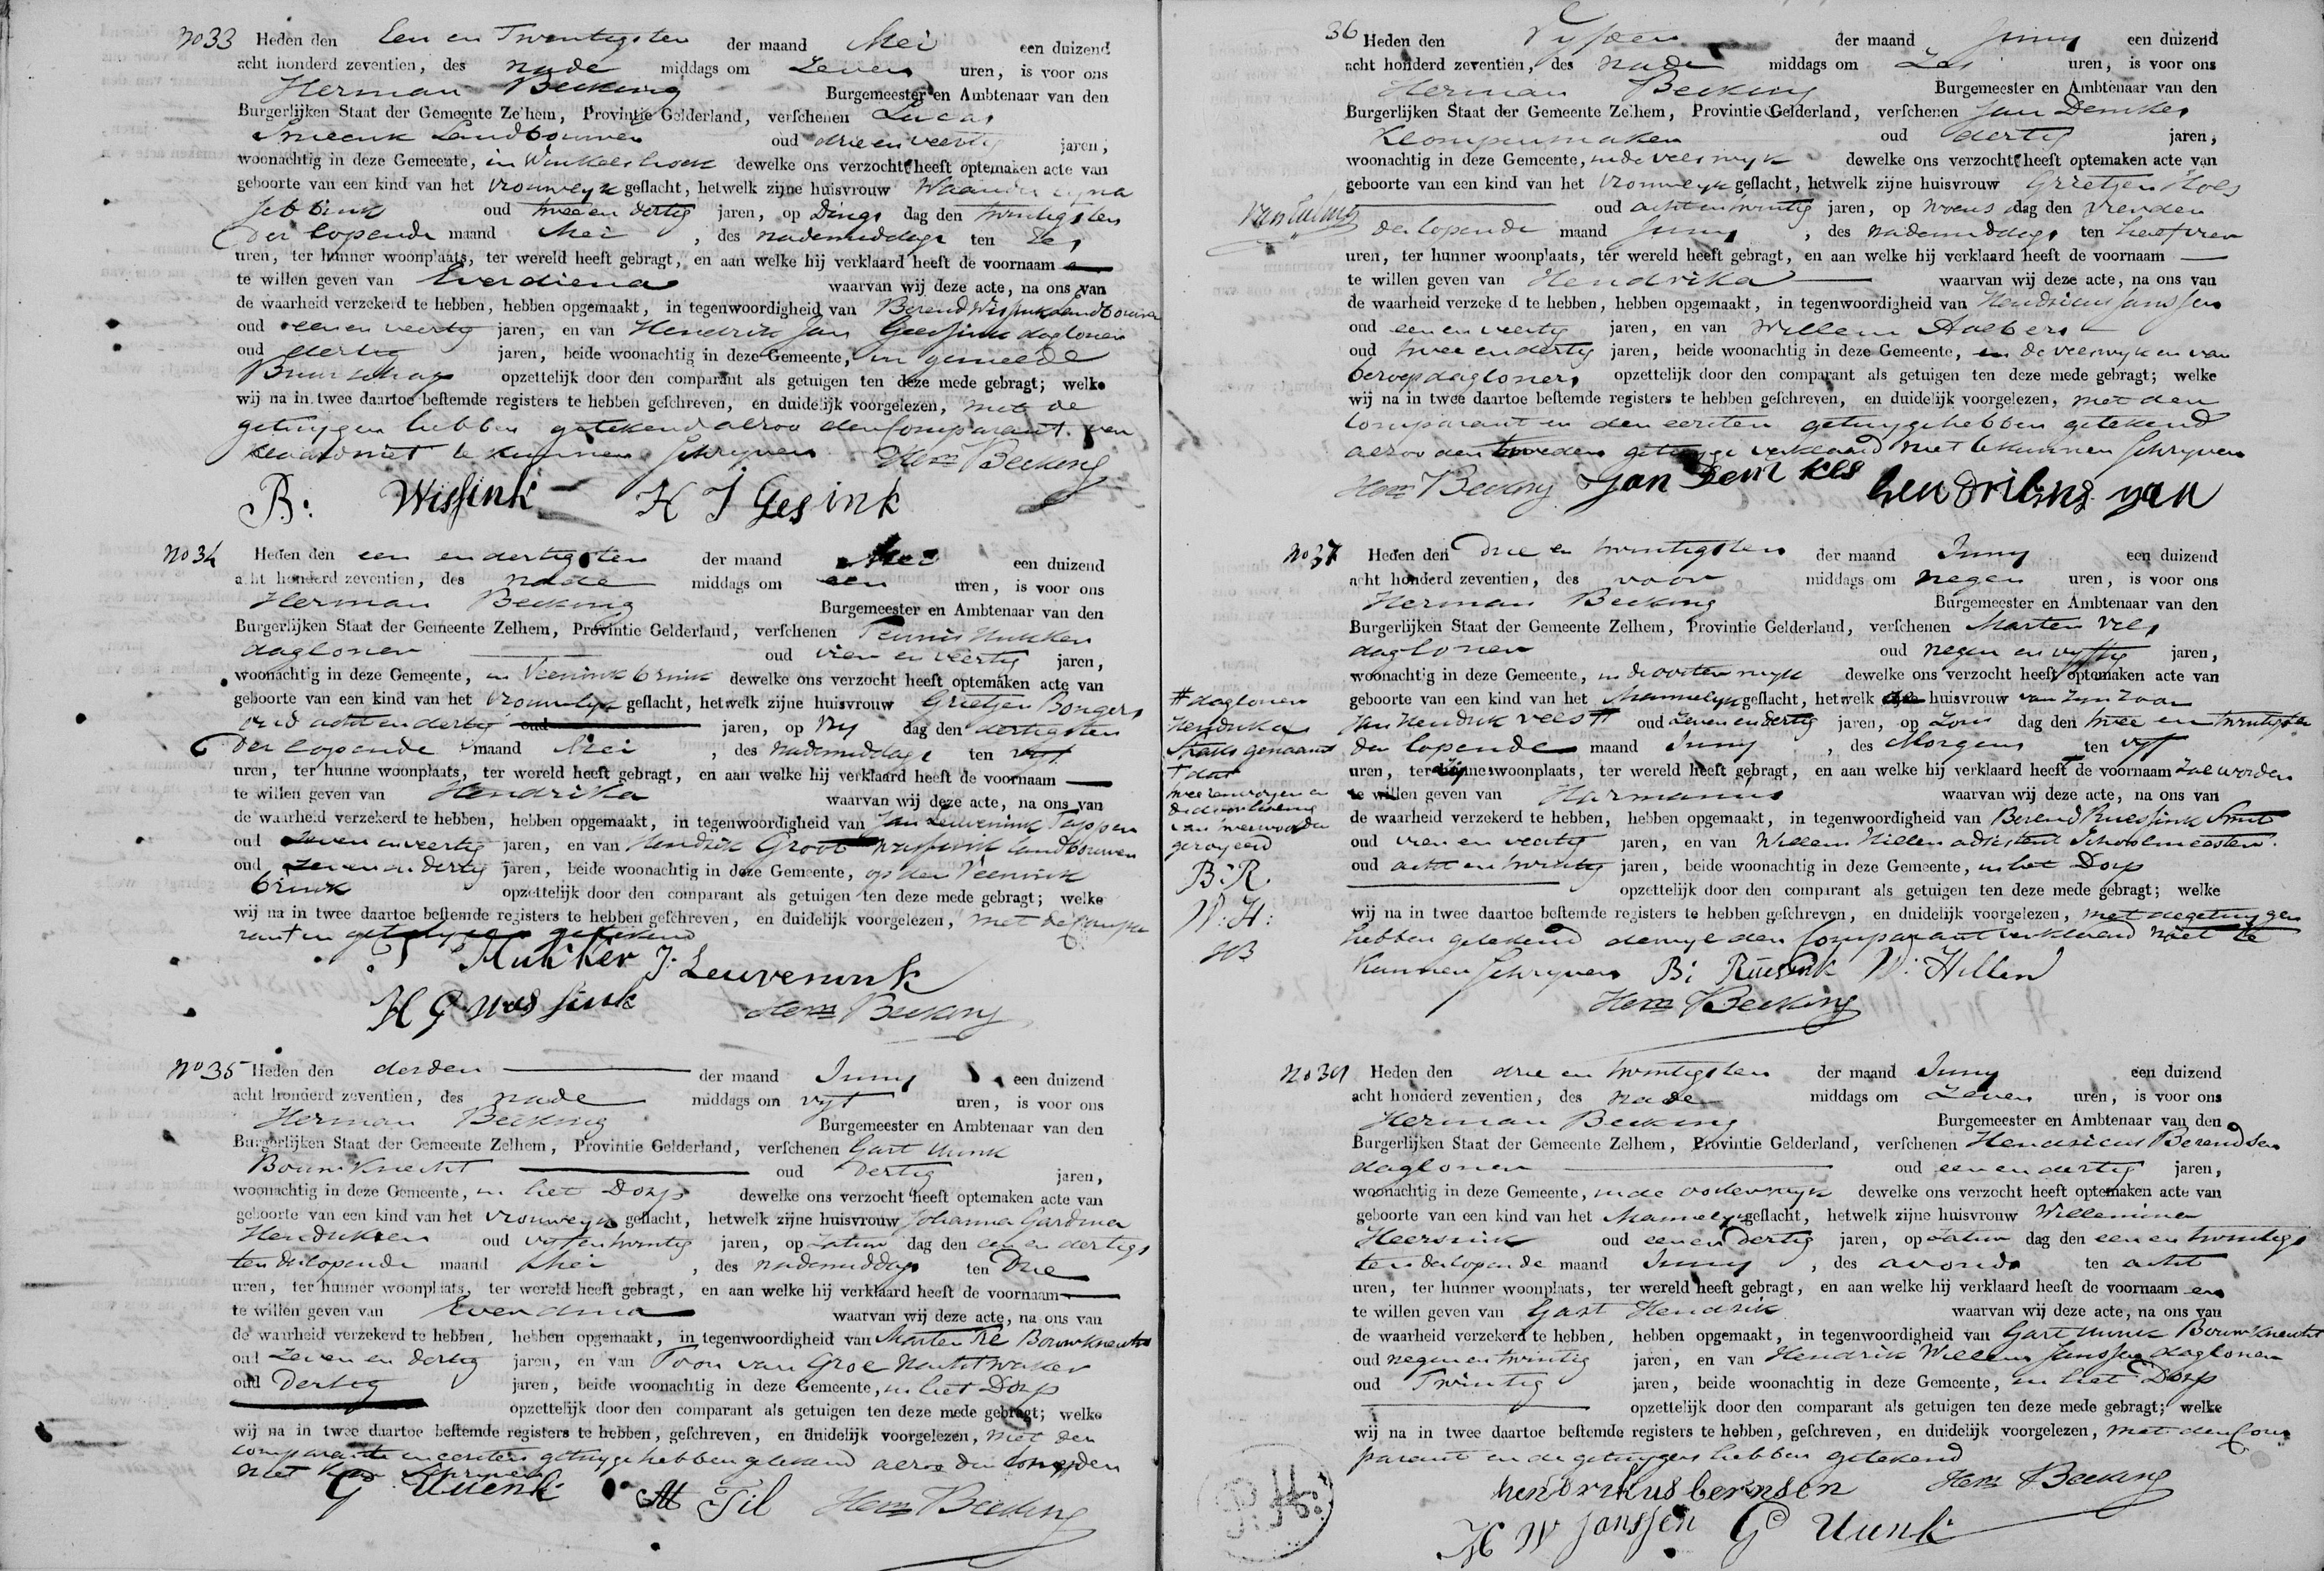 No 33 Heden den Een en Twintigsten der maand Mei een duizend
acht honderd zeventien, des nade middags om Zeven uren, is voor ons
Herman Becking Burgemeester en Ambtenaar van den
Burgerlijken Staat der Gemeente Zelhem, Provintie Gelderland, verschenen Lucas
Smeenk Landbouwer oud drie en veertig jaren,
woonachtig in deze Gemeente, in Winkelshoek dewelke ons verzocht heeft optemaken acte van
geboorte van een kind van het vrouwelyk geslacht, hetwelk zijne huisvrouw
Jebbink oud twee en dertig jaren, op Dings dag den twintigsten
der lopende maand Mei, des nademiddags ten Zes
uren, ter hunner woonplaats, ter wereld heeft gebragt, en aan welke hij verklaard heeft de voornaam
te willen geven van Everdiena waarvan wij deze acte, na ons van
de waarheid verzekerd te hebben, hebben opgemaakt, in tegenwoordigheid van Berend Wissink Landbouwer
oud een en veertig jaren, en van Hendrik Jan Geessink dagloner
oud dertig jaren, beide woonachtig in deze Gemeente, in gemeede
Buurschap opzettelijk door den comparant als getuigen ten deze mede gebragt; welke
wij na in twee daartoe bestemde registers te hebben geschreven, en duidelijk voorgelezen, met de
getuygen hebben getekend alzoo den Comparant ver
klaard niet te kunnen schryven Herm Becking
B: Wissink H J Gesink
No 34 Heden den een en dertigsten der maand Mei een duizend
acht honderd zeventien, des nade middags om een uren, is voor ons
Herman Becking Burgemeester en Ambtenaar van den
Burgerlijken Staat der Gemeente Zelhem, Provintie Gelderland, verschenen Teunis Hukker
dagloner oud vier en veertig jaren,
woonachtig in deze Gemeente, in Veenink brink dewelke ons verzocht heeft optemaken acte van
geboorte van een kind van het vrouwelyk geslacht, hetwelk zijne huisvrouw Grietjen Bongers
oud acht en dertig jaren, op Vry dag den dertigsten
der lopende maand Mei, des nademiddags ten vyf
uren, ter hunne woonplaats, ter wereld heeft gebragt, en aan welke hij verklaard heeft de voornaam
te willen geven van Hendrika waarvan wij deze acte, na ons van
de waarheid verzekerd te hebben, hebben opgemaakt, in tegenwoordigheid van Jan Leuvenink Tapper
oud zeven en veertig jaren, en van Hendrik Groot Wassink landbouwer
oud zeven en dertig jaren, beide woonachtig in deze Gemeente, op den Veenink
brink opzettelijk door den comparant als getuigen ten deze mede gebragt; welke
wij na in twee daartoe bestemde registers te hebben geschreven, en duidelijk voorgelezen, met de Compa
rant en getuygen getekend
T Hukker J: Leuvenink
H G Wassink Herm Becking
No 35 Heden den derden der maand Juny een duizend
acht honderd zeventien, des nade middags om vyf uren, is voor ons
Herman Becking Burgemeester en Ambtenaar van den
Burgerlijken Staat der Gemeente Zelhem, Provintie Gelderland, verschenen Gart Uunk
Bouwknecht oud dertig jaren,
woonachtig in deze Gemeente, in het Dorp dewelke ons verzocht heeft optemaken acte van
geboorte van een kind van het vrouwelyk geslacht, hetwelk zijne huisvrouw Johanna Gardina
Hendriksen oud vyf en twintig jaren, op Zatur dag den een en dertigs
ten der lopende maand Mei, des nademiddags ten Drie
uren, ter hunner woonplaats, ter wereld heeft gebragt, en aan welke hij verklaard heeft de voornaam
te willen geven van Everdina waarvan wij deze acte, na ons van
de waarheid verzekerd te hebben, hebben opgemaakt, in tegenwoordigheid van Marten Til Bouwknecht
oud zeven en dertig jaren, en van Toon van Groe Nachtwaker
oud Dertig jaren, beide woonachtig in deze Gemeente, in het Dorp
opzettelijk door den comparant als getuigen ten deze mede gebragt; welke
wij na in twee daartoe bestemde registers te hebben, geschreven, en duidelijk voorgelezen, met den
comparante en eersten getuyge hebben getekend alzoo den tweeden
niet kan schryven
G Uuenk M Til Herm Becking
36 Heden den Vyfden der maand Juny een duizend
acht honderd zeventien, des nade middags om Zes uren, is voor ons
Herman Becking Burgemeester en Ambtenaar van den
Burgerlijken Staat der Gemeente Zelhem, Provintie Gelderland, verschenen Jan Demkes
Klompenmaker oud dertig jaren,
woonachtig in deze Gemeente, in de veeswyk dewelke ons verzocht heeft optemaken acte van
geboorte van een kind van het vrouwelyk geslacht, hetwelk zijne huisvrouw Grietjen
oud acht en twintig jaren, op Woens dag den vierden
der lopende maand Juny, des nademiddags ten half vier
uren, ter hunner woonplaats, ter wereld heeft gebragt, en aan welke hij verklaard heeft de voornaam
te willen geven van Hendrika waarvan wij deze acte, na ons van
de waarheid verzekerd te hebben, hebben opgemaakt, in tegenwoordigheid van Hendricus Janssen
oud een en veertig jaren, en van Willem Aalbers
oud twee en dertig jaren, beide woonachtig in deze Gemeente, in de veeswyk en van
beroep dagloners opzettelijk door den comparant als getuigen ten deze mede gebragt; welke
wij na in twee daartoe bestemde registers te hebben geschreven, en duidelijk voorgelezen, met den
Comparant en den eersten getuyge hebben getekend
alzoo den tweeden getuyge verklaard niet te kunnen schryven
Herm Becking Jan Demkes
No 37 Heden den Drie en twintigsten der maand Juny een duizend
acht honderd zeventien, des voor middags om negen uren, is voor ons
Herman Becking Burgemeester en Ambtenaar van den
Burgerlijken Staat der Gemeente Zelhem, Provintie Gelderland, verschenen Marten Vels
dagloner oud negen en vyftig jaren,
woonachtig in deze Gemeente, in de oosterwyk dewelke ons verzocht heeft optemaken acte van
geboorte van een kind van het Mannelyk geslacht, hetwelk de huisvrouw van zyn zoon
Jan Hendrik Vels # oud zeven en dertig jaren, op Zon dag den twee en twintigste
der lopende maand Juny, des Morgens ten vyf
uren, ter zijne woonplaats, ter wereld heeft gebragt, en aan welke hij verklaard heeft de voornaam zal worden
te willen geven van Harmanus waarvan wij deze acte, na ons van
de waarheid verzekerd te hebben, hebben opgemaakt, in tegenwoordigheid van Berend Ruessink Smit
oud vier en veertig jaren, en van Willem Hillen adsistent Schoolmeester
oud acht en twintig jaren, beide woonachtig in deze Gemeente, in het Dorp
opzettelijk door den comparant als getuigen ten deze mede gebragt; welke
wij na in twee daartoe bestemde registers te hebben geschreven, en duidelijk voorgelezen, met de getuygen
hebben getekend dewyl den Comparant verklaard niet te
kunnen schryven B: Ruesink W: Hillen
Herm Becking
# dagloner
Hendrika
Staats genaamd
geroyeerd
B: R.
W: H:
HB
No 39 Heden den drie en twintigsten der maand Juny een duizend
acht honderd zeventien, des nade middags om Zeven uren, is voor ons
Herman Becking Burgemeester en Ambtenaar van den
Burgerlijken Staat der Gemeente Zelhem, Provintie Gelderland, verschenen Hendricus Berendsen
dagloner oud een en dertig jaren,
woonachtig in deze Gemeente, in de oosterwyk dewelke ons verzocht heeft optemaken acte van
geboorte van een kind van het Mannelyk geslacht, hetwelk zijne huisvrouw Willemina
Heersink oud een en dertig jaren, op Zatur dag den een en twintigs
ten der lopende maand Juny, des avonds ten acht
uren, ter hunner woonplaats, ter wereld heeft gebragt, en aan welke hij verklaard heeft de voornaam en
te willen geven van Gart Hendrik waarvan wij deze acte, na ons van
de waarheid verzekerd te hebben, hebben opgemaakt, in tegenwoordigheid van Gart Uunk Bouwknecht
oud negen en twintig jaren, en van Hendrik Willem Janssen dagloner
oud Twintig jaren, beide woonachtig in deze Gemeente, in het Dorp
opzettelijk door den comparant als getuigen ten deze mede gebragt; welke
wij na in twee daartoe bestemde registers te hebben, geschreven, en duidelijk voorgelezen, met den Com
parant en de getuygen hebben getekend
hendrikus bernsen Herm Becking
H W Janssen G Uunk